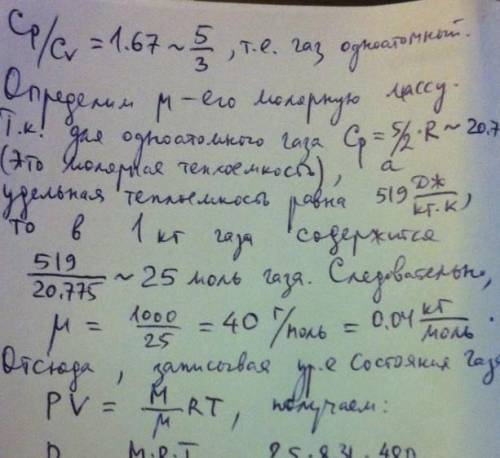 Cp/Cv = 1.67 ~ 5/3, т.е. газ одноатомный.
Определим μ - его молярную массу.
Т.к. для одноатомного газа Cp = 5/2·R ~ 20.7
(это молярная теплоемкость), а
удельная теплоемкость равна 519 Дж/кг.К,
то в 1 кг газа содержится
519/20.775 ~ 25 моль газа. Следовательно,
μ = 1000/25 = 40 г/моль = 0.04 кг/моль.
Отсюда, записывая ур.е состояния газа
PV = M/μ RT, получаем:
M.R.T 85.831.480